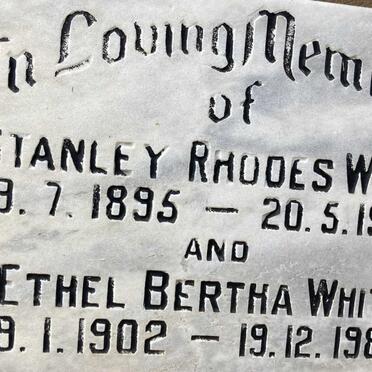 In Loving Mem
of
STANLEY RHODES W
9. 7. 1895 — 20. 5. 19
AND
ETHEL BERTHA WHIT
9. 1. 1902 — 19. 12. 198